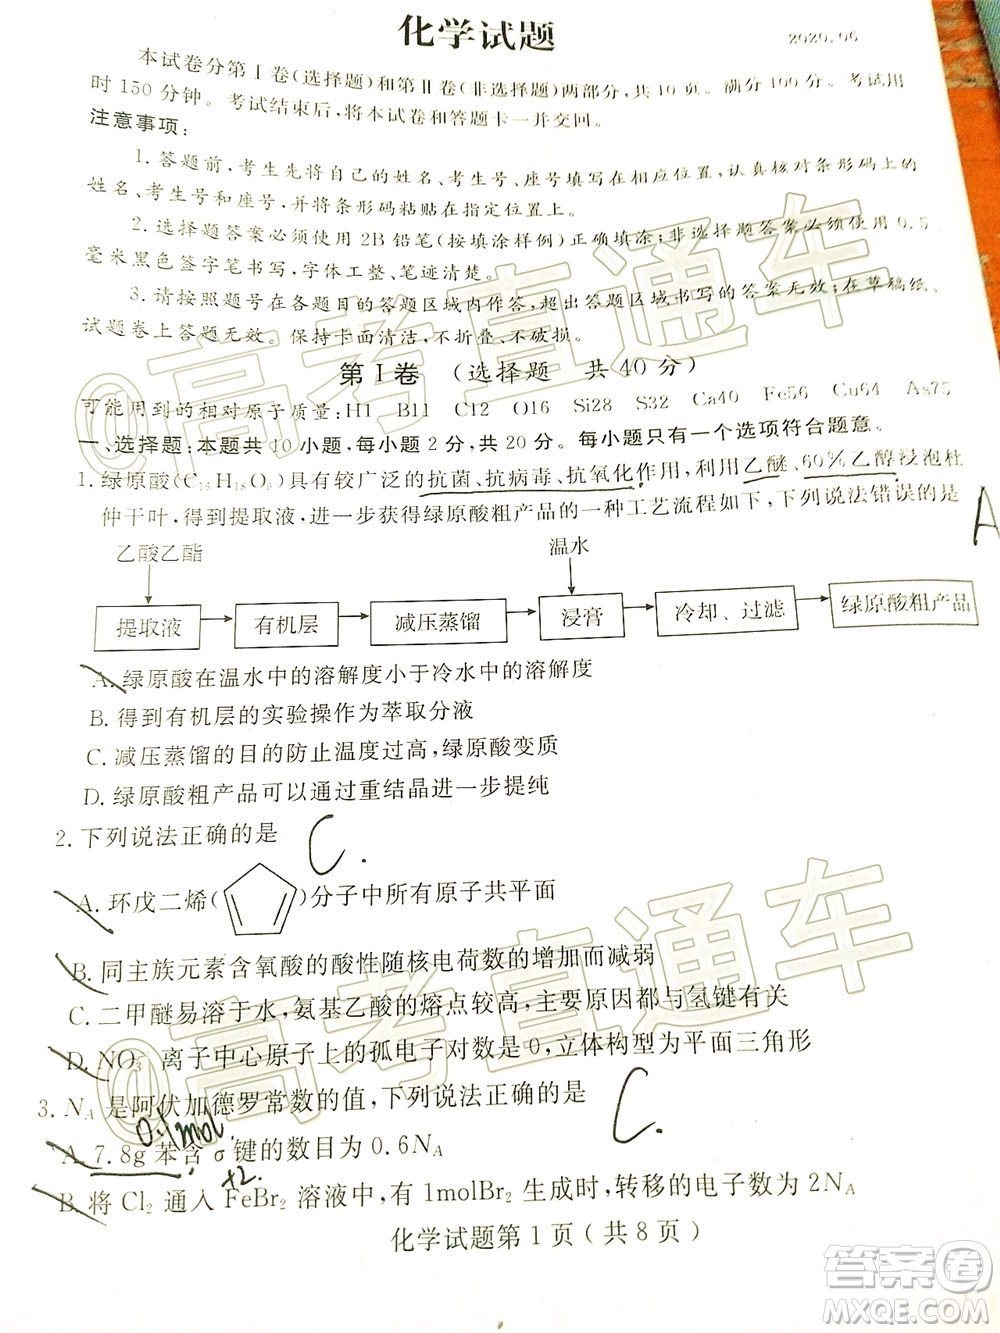 化学试题
2020.06
本试卷分第Ⅰ卷(选择题)和第Ⅱ卷(非选择题)两部分,共10页。满分100分。考试用
时150分钟。考试结束后,将本试卷和答题卡一并交回。
注意事项:
1.答题前,考生先将自己的姓名、考生号、座号填写在相应位置,认真核对条形码上的
姓名、考生号和座号,并将条形码粘贴在指定位置上。
2.选择题答案必须使用2B铅笔(按填涂样例)正确填涂;非选择题答案必须使用0.5
毫米黑色签字笔书写,字体工整、笔迹清楚。
3.请按照题号在各题目的答题区域内作答,超出答题区域书写的答案无效;在草稿纸、
试题卷上答题无效。保持卡面清洁,不折叠、不破损。
第Ⅰ卷 (选择题 共40分)
可能用到的相对原子质量:H1 B11 C12 O16 Si28 S32 Ca40 Fe56 Cu64 As75
一、选择题:本题共10小题,每小题2分,共20分。每小题只有一个选项符合题意。
1.绿原酸(C₁₆H₁₈O₉)具有较广泛的抗菌、抗病毒、抗氧化作用,利用乙醚、60%乙醇浸泡杜
仲干叶,得到提取液,进一步获得绿原酸粗产品的一种工艺流程如下,下列说法错误的是
A
乙酸乙酯 温水
提取液 有机层 减压蒸馏 浸膏 冷却、过滤 绿原酸粗产品
A.绿原酸在温水中的溶解度小于冷水中的溶解度
B.得到有机层的实验操作为萃取分液
C.减压蒸馏的目的防止温度过高,绿原酸变质
D.绿原酸粗产品可以通过重结晶进一步提纯
2.下列说法正确的是 C.
A.环戊二烯( )分子中所有原子共平面
B.同主族元素含氧酸的酸性随核电荷数的增加而减弱
C.二甲醚易溶于水,氨基乙酸的熔点较高,主要原因都与氢键有关
D.NO₃⁻离子中心原子上的孤电子对数是0,立体构型为平面三角形
3.N_A是阿伏加德罗常数的值,下列说法正确的是 C.
0.1mol
A.7.8g苯含σ键的数目为0.6N_A
+2.
B.将Cl₂通入FeBr₂溶液中,有1molBr₂生成时,转移的电子数为2N_A
化学试题第1页(共8页)
@高考直通车
@高考直通车
答案圈
MXQE.COM